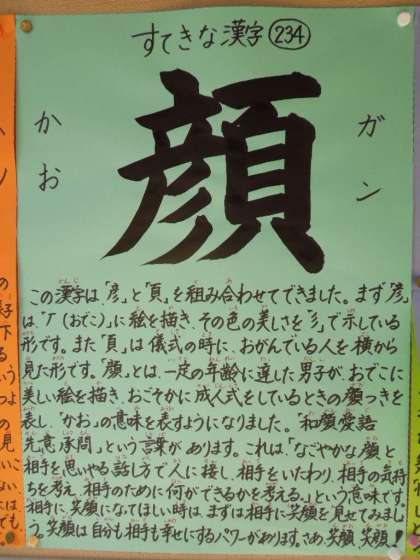 すてきな漢字 234
顔
かお
ガン
この漢字は「彦」と「頁」を組み合わせてできました。まず「彦」
は「厂（おでこ）」に絵を描き、その色の美しさを「彡」で示している
形です。また「頁」は儀式の時に、おがんでいる人を横から
見た形です。「顔」とは、一定の年齢に達した男子が、おでこに
美しい絵を描き、おごそかに成人式をしているときの顔つきを
表し「かお」の意味を表すようになりました。「和顔愛語
先意承問」という言葉があります。これは、「なごやかな顔と
相手を思いやる話し方で人に接し、相手をいたわり、相手の気持
ちを考え、相手のために何ができるかを考える。」という意味です。
相手に、笑顔になてほしい時は、まずは相手に笑顔を見せてみましょ
う。笑顔は自分も相手も幸せにするパワーがあります。さあ、笑顔、笑顔！